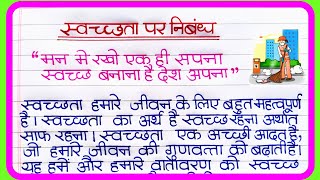 स्वच्छता पर निबंध
“मन मे रखो एक ही सपना
स्वच्छ बनाना है देश अपना”
स्वच्छता हमारे जीवन के लिए बहुत महत्वपूर्ण
है। स्वच्छता का अर्थ है स्वच्छ रहना अर्थात
साफ रहना। स्वच्छता एक अच्छी आदत है,
जो हमारे जीवन की गुणवत्ता को बढ़ाती है।
यह हमे और हमारे वातावरण को स्वच्छ